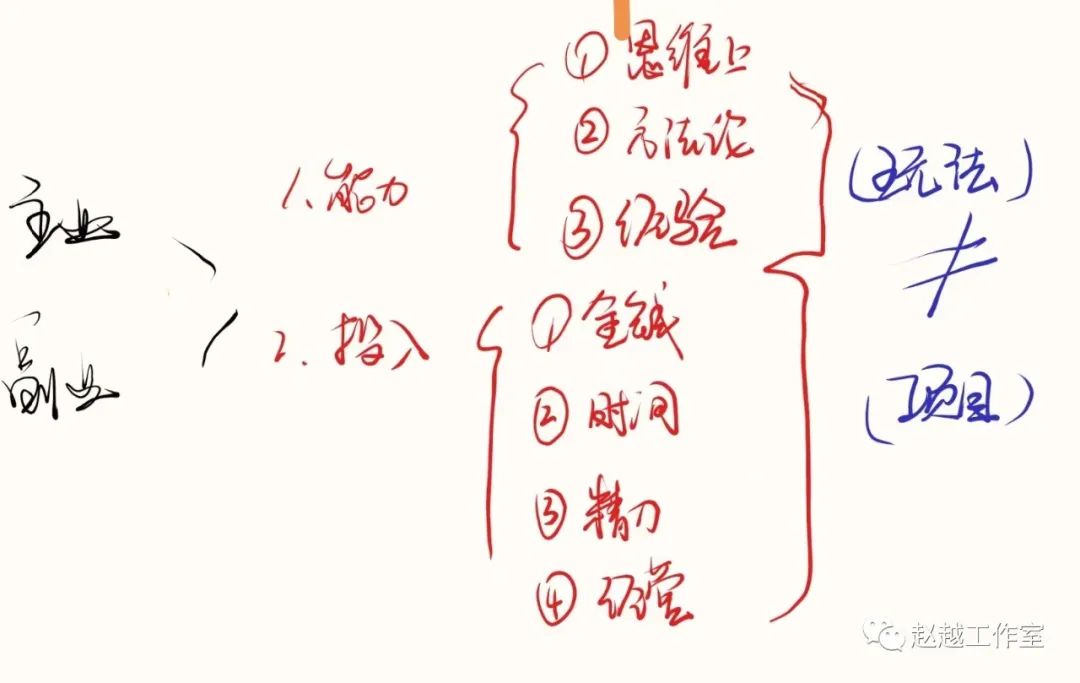 主业
副业
1. 能力
① 思维上
② 方法论
③ 经验
2. 投入
① 金钱
② 时间
③ 精力
④ 经营
(玩法)
≠
(项目)
赵越工作室